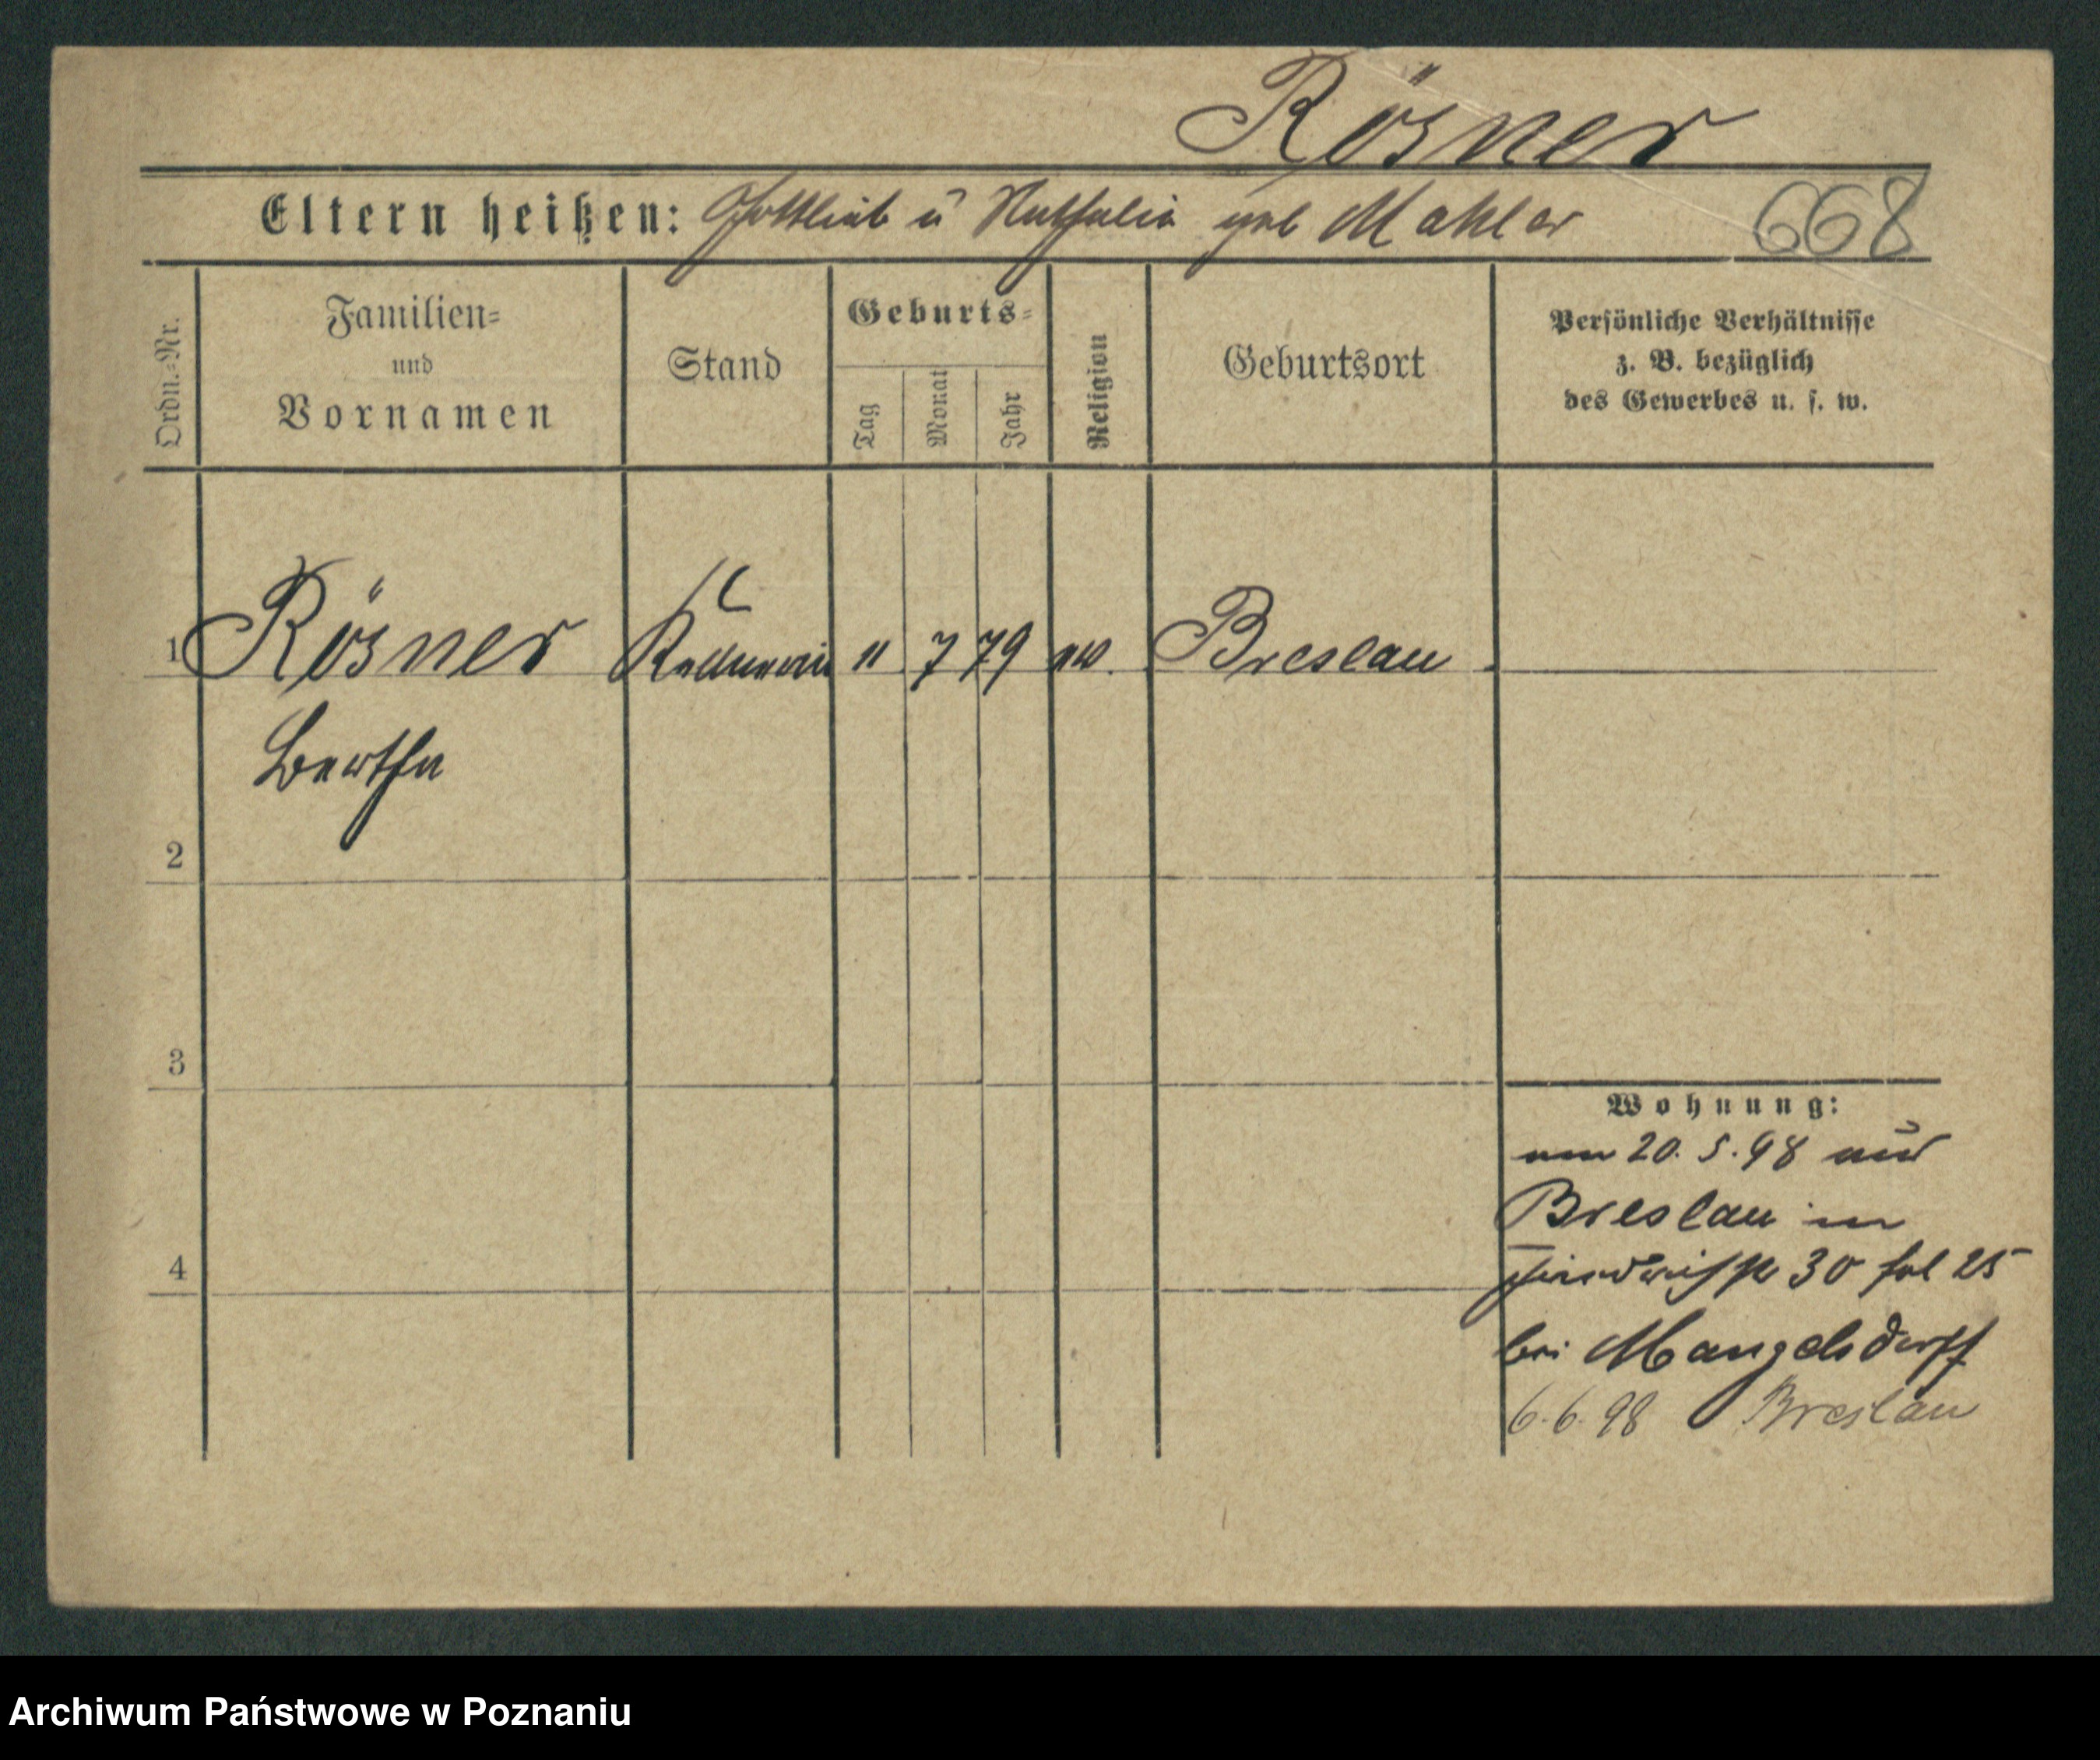 Rösner
Eltern heißen: Gottlieb u Nathalia geb Mahler 668
Ordn.=Nr.
Familien=
und
Vornamen
Stand
Geburts=
Tag
Monat
Jahr
Religion
Geburtsort
Persönliche Verhältnisse
z. B. bezüglich
des Gewerbes u. s. w.
1 Rösner Kellnerin 11 7 79 ev. Breslau
Bertha
2
3
Wohnung:
am 20. 5. 98 aus
Breslau in
4
30 25
bei Mangelsdorff
6. 6. 98 Breslau
Archiwum Państwowe w Poznaniu